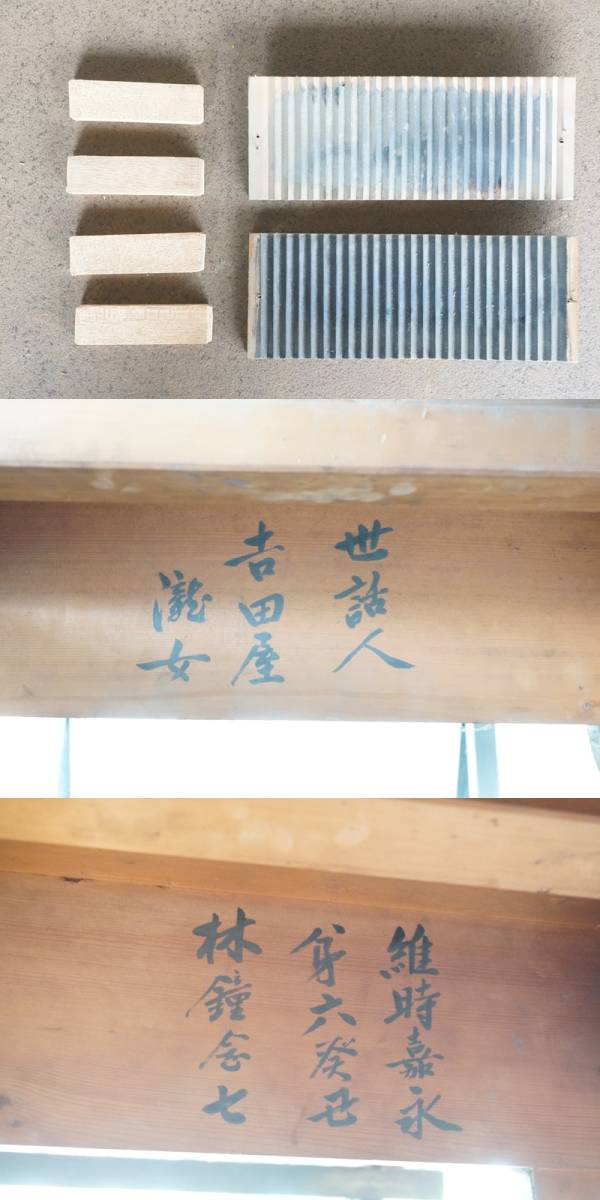 世話人
吉田屋
瀧女
維時嘉永
第六癸丑
林鐘念七